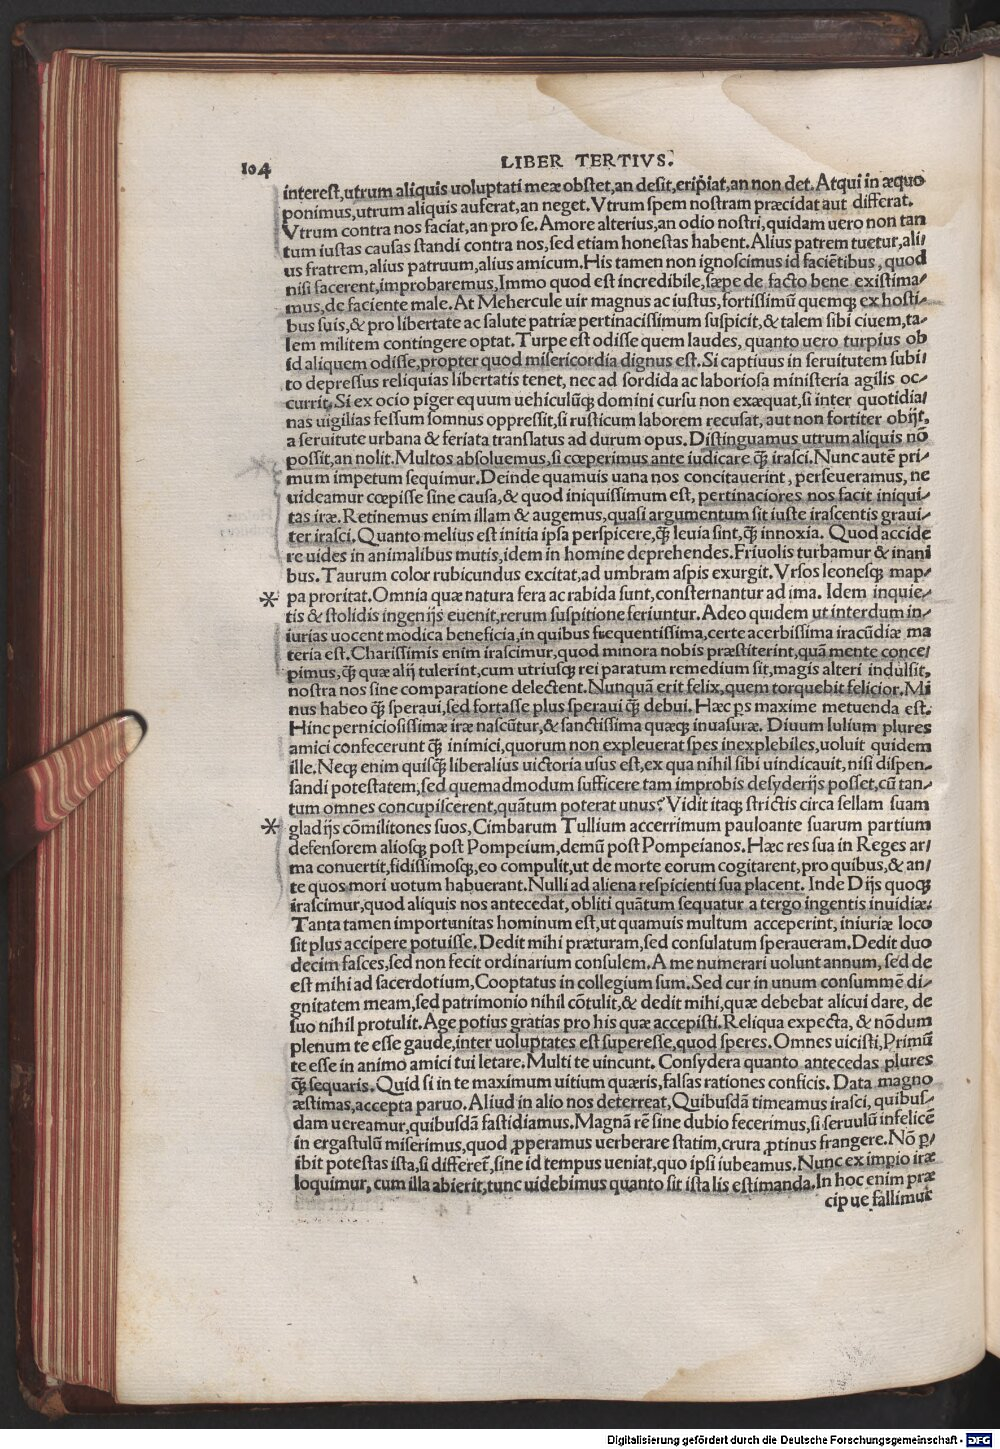 104
LIBER TERTIVS.
interest,utrum aliquis uoluptati meæ obstet,an desit,eripiat,an non det.Atqui in æquo
ponimus,utrum aliquis auferat,an neget.Vtrum spem nostram præcidat aut differat.
Vtrum contra nos faciat,an pro se.Amore alterius,an odio nostri,quidam uero non tan
tum iustas causas standi contra nos,sed etiam honestas habent.Alius patrem tuetur,ali/
us fratrem,alius patruum,alius amicum.His tamen non ignoscimus id faciẽtibus,quod
nisi facerent,improbaremus,Immo quod est incredibile,sæpe de facto bene existima/
mus,de faciente male.At Mehercule uir magnus ac iustus,fortissimũ quemq̃ ex hosti/
bus suis,& pro libertate ac salute patriæ pertinacissimum suspicit,& talem sibi ciuem,ta/
lem militem contingere optat.Turpe est odisse quem laudes,quanto uero turpius ob
id aliquem odisse,propter quod misericordia dignus est.Si captiuus in seruitutem subi/
to depressus reliquias libertatis tenet,nec ad sordida ac laboriosa ministeria agilis oc/
currit.Si ex ocio piger equum uehiculũq̃ domini cursu non exæquat,si inter quotidia/
nas uigilias fessum somnus oppressit,si rusticum laborem recusat,aut non fortiter obijt,
a seruitute urbana & feriata translatus ad durum opus.Distinguamus utrum aliquis nõ
possit,an nolit.Multos absoluemus,si cœperimus ante iudicare q̃ irasci.Nunc autẽ pri/
mum impetum sequimur.Deinde quamuis uana nos concitauerint,perseueramus,ne
uideamur cœpisse sine causa,& quod iniquissimum est,pertinaciores nos facit iniqui/
tas iræ.Retinemus enim illam & augemus,quasi argumentum sit iuste irascentis graui/
ter irasci.Quanto melius est initia ipsa perspicere,q̃ leuia sint,q̃ innoxia. Quod accide
re uides in animalibus mutis,idem in homine deprehendes.Friuolis turbamur & inani
bus.Taurum color rubicundus excitat,ad umbram aspis exurgit.Vrsos leonesq̃ map/
* pa proritat.Omnia quæ natura fera ac rabida sunt,consternantur ad ima. Idem inquie/
tis & stolidis ingenijs euenit,rerum suspitione feriuntur.Adeo quidem ut interdum in/
iurias uocent modica beneficia,in quibus frequentissima,certe acerbissima iracũdiæ ma
teria est.Charissimis enim irascimur,quod minora nobis præstiterint,quã mente conce/
pimus,q̃ quæ alij tulerint,cum utriusq̃ rei paratum remedium sit,magis alteri indulsit,
nostra nos sine comparatione delectent.Nunquã erit felix,quem torquebit felicior.Mi
nus habeo q̃ speraui,sed fortasse plus speraui q̃ debui.Hæc ps maxime metuenda est.
Hinc perniciosissimæ iræ nascũtur,& sanctissima quæq̃ inuasuræ.Diuum Iulium plures
amici confecerunt q̃ inimici,quorum non expleuerat spes inexplebiles,uoluit quidem
ille.Neq̃ enim quisq̃ liberalius uictoria usus est,ex qua nihil sibi uindicauit,nisi dispen/
sandi potestatem,sed quemadmodum sufficere tam improbis desyderijs posset,cũ tan/
tum omnes concupiscerent,quãtum poterat unus?Vidit itaq̃ strictis circa sellam suam
* gladijs cõmilitones suos,Cimbarum Tullium accerrimum pauloante suarum partium
defensorem aliosq̃ post Pompeium,demũ post Pompeianos.Hæc res sua in Reges ar/
ma conuertit,fidissimosq̃,eo compulit,ut de morte eorum cogitarent,pro quibus,& an/
te quos mori uotum habuerant.Nulli ad aliena respicienti sua placent.Inde Dijs quoq̃
irascimur,quod aliquis nos antecedat,obliti quãtum sequatur a tergo ingentis inuidiæ.
Tanta tamen importunitas hominum est,ut quamuis multum acceperint,iniuriæ loco
sit plus accipere potuisse.Dedit mihi præturam,sed consulatum speraueram.Dedit duo
decim fasces,sed non fecit ordinarium consulem.A me numerari uolunt annum,sed de
est mihi ad sacerdotium,Cooptatus in collegium sum.Sed cur in unum consummẽ di/
gnitatem meam,sed patrimonio nihil cõtulit,& dedit mihi,quæ debebat alicui dare,de
suo nihil protulit.Age potius gratias pro his quæ accepisti.Reliqua expecta,& nõdum
plenum te esse gaude,inter uoluptates est superesse,quod speres.Omnes uicisti,Primũ
te esse in animo amici tui letare.Multi te uincunt.Consydera quanto antecedas plures
q̃ sequaris.Quid si in te maximum uitium quæris,falsas rationes conficis.Data magno
æstimas,accepta paruo.Aliud in alio nos deterreat,Quibusdã timeamus irasci,quibus/
dam uereamur,quibusdã fastidiamus.Magnã rẽ sine dubio fecerimus,si seruulũ infelicẽ
in ergastulũ miserimus,quod ꝓperamus uerberare statim,crura ꝓtinus frangere.Nõ p/
ibit potestas ista,si differet̃,sine id tempus ueniat,quo ipsi iubeamus.Nunc ex impio iræ
loquimur,cum illa abierit,tunc uidebimus quanto sit ista lis estimanda.In hoc enim præ
cipue fallimur
Digitalisierung gefördert durch die Deutsche Forschungsgemeinschaft - DFG